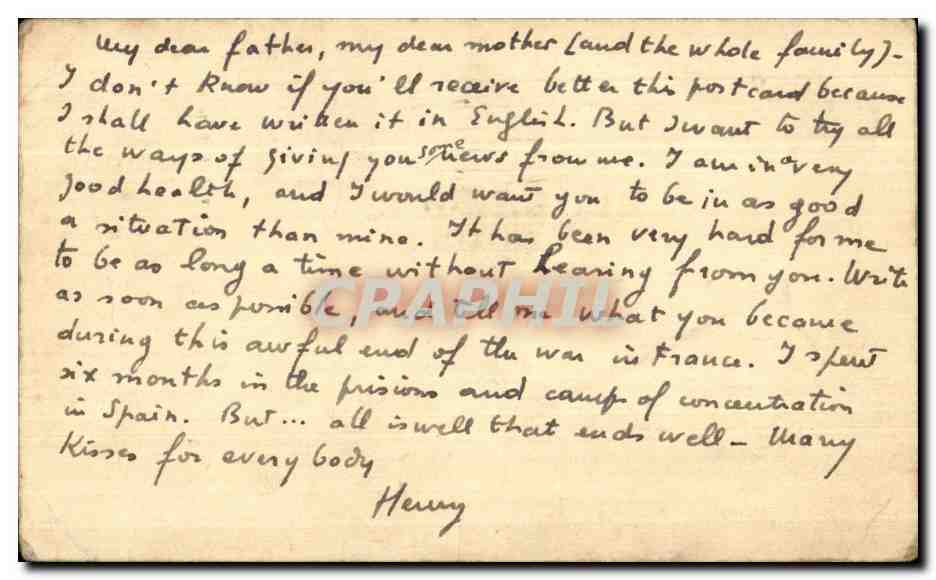 My dear father, my dear mother (and the whole family) -
I don't know if you'll receive better this postcard because
I shall have written it in English. But I want to try all
the ways of giving you some news from me. I am in a very
good health, and I would want you to be in as good
a situation than mine. It has been very hard for me
to be as long a time without hearing from you. Write
as soon as possible, and tell me what you became
during this awful end of the war in France. I spent
six months in the prisions and camps of concentration
in Spain. But... all is well that ends well - Many
Kisses for every body
Henry
CPAPHIL